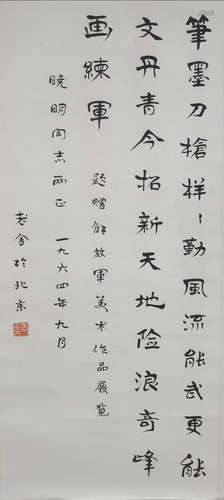 筆墨刀槍樣々勤風流能武更能
文丹青今拓新天地险浪奇峰
画練軍
题赠解放軍美术作品展览
晓明同志两正 一九六四年九月
老舍於北京